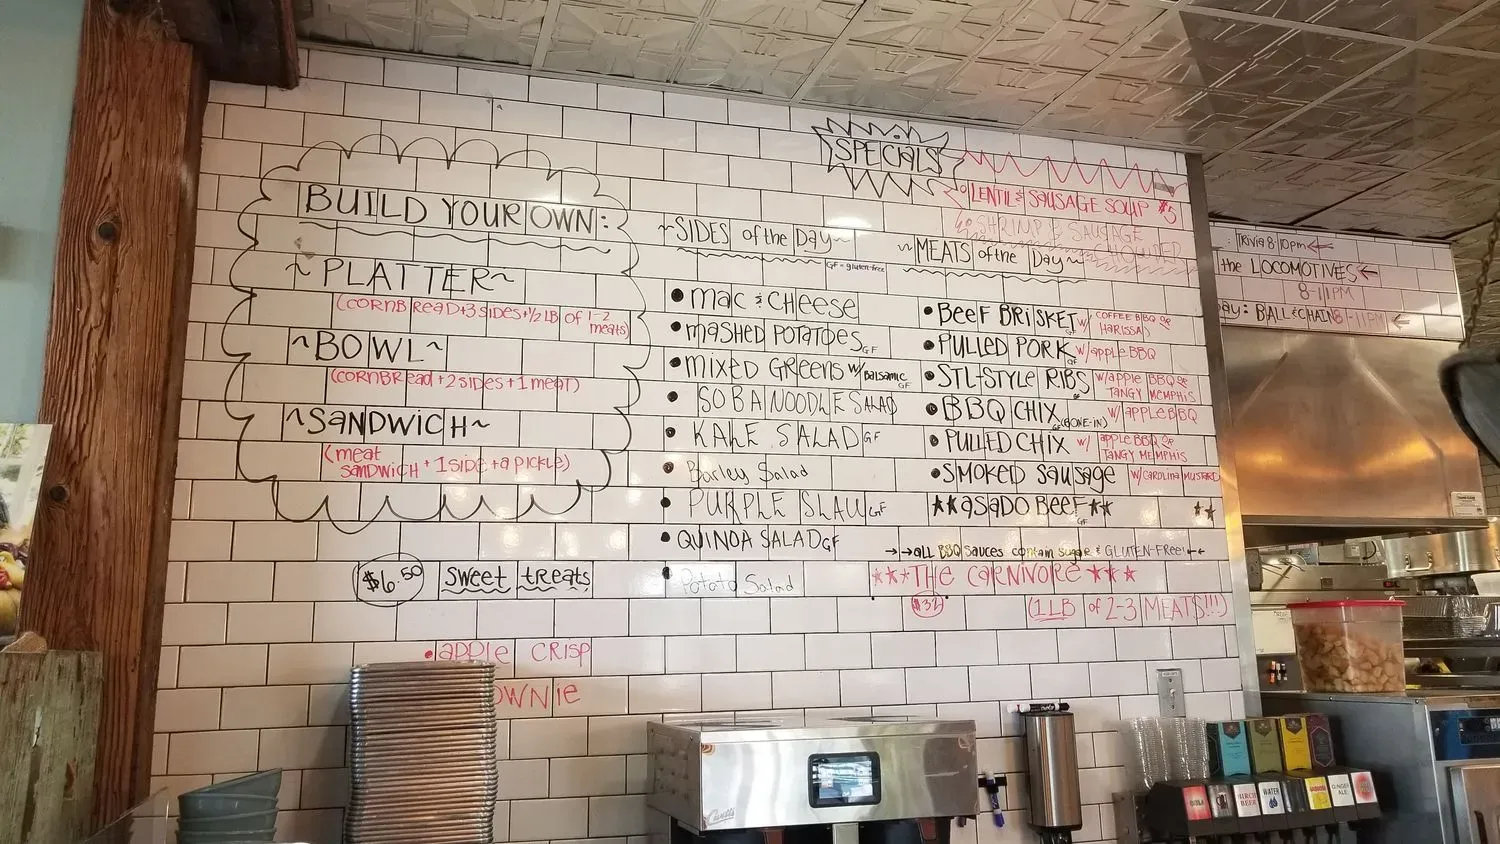 BUILD YOUR OWN:
~ PLATTER ~
(CORNBREAD + 3 SIDES + 1/2 LB of 1-2
meats)
~ BOWL ~
(CORNBRead + 2 SIDES + 1 meat)
~ SANDWICH ~
(meat
SANDWICH + 1 side + a pickle)
$6.50 sweet treats
• apple CRISP
OWNIE
SPECIALS
LENTIL & SAUSAGE SOUP $5
SHRIMP & SAUSAGE
CHOWDER
~ SIDES of the Day ~
GF = gluten-free
• mac & CHeese
• mASHED POTATOES GF
• mixed GReens w/ Balsamic GF
• SOBA NOODLE SALAD
• KALE SALAD GF
• Barley Salad
• PURPLE SLAW GF
• QUINOA SALAD GF
• Potato Salad
~ MEATS of the Day ~
• BeeF BRISKET w/ COFFEE BBQ or
HARISSA
• PULLED PORK w/ apple BBQ
• STL-STYLE RIBS w/ apple BBQ or
TANGY MEMPHIS
• BBQ CHIX (BONE-IN) w/ apple BBQ
• PULLED CHIX w/ apple BBQ or
TANGY MEMPHIS
• SMOKED Sausage w/ CAROLINA MUSTARD
★★ aSADO BeeF ★★ ★★
GF
→→ ALL BBQ sauces contain sugar & GLUTEN-Free! ←←
★★★ THE CARNIVORE ★★★
$32 (1 LB of 2-3 MEATS!!!)
: TRIVIA 8 10pm ←
the LOCOMOTIVES ←
8-11PM
ay: BALL & CHAIN 8-11PM ←
Curtis
BIRCH
BEER
WATER
GINGER
ALE